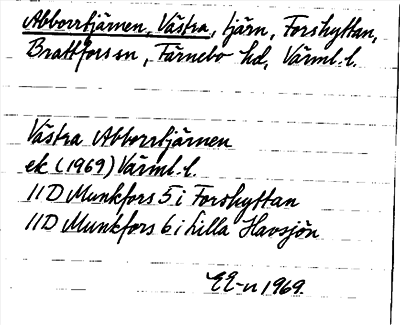 Abborrtjärnen, Västra, tjärn, Forshyttan,
Brattfors sn, Färnebo hd, Värml. l.
Västra Abborrtjärnen
ek (1969) Värml. l.
11D Munkfors 5 i Forshyttan
11D Munkfors 6 i Lilla Havsjön
EE-n 1969.